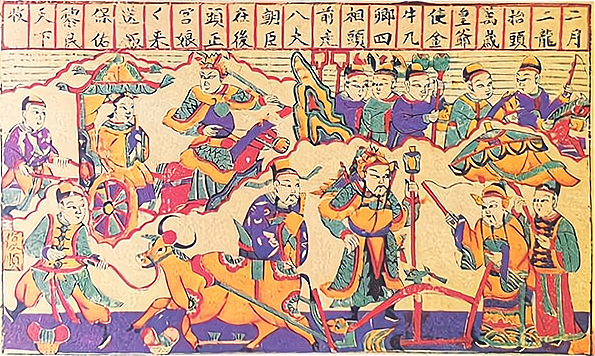 二月
二龍
抬頭
萬歲
皇爺
使金
牛九
卿四
相頭
前走
八大
朝臣
在後
頭正
宮娘
く来
送飯
保佑
黎民
天下
收